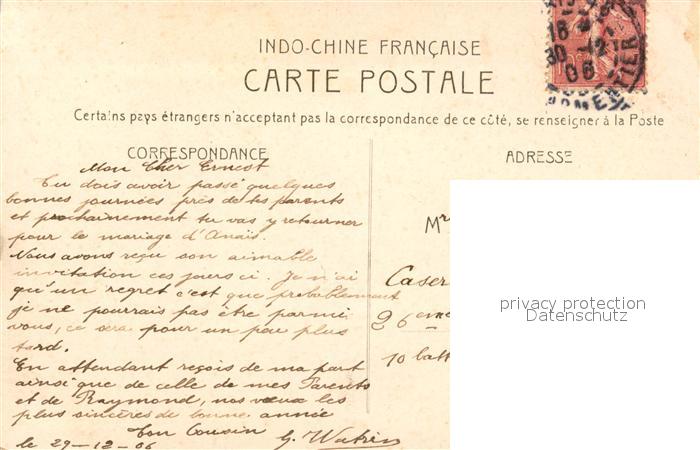 INDO-CHINE FRANÇAISE
CARTE POSTALE
Certains pays étrangers n'acceptant pas la correspondance de ce côté, se renseigner à la Poste
CORRESPONDANCE
Mon Cher Ernest
Tu dois avoir passé quelques
bonnes journées près de tes parents
et prochainement tu vas y retourner
pour le mariage d'Anaïs.
Nous avons reçu son aimable
invitation ces jours ci. Je n'ai
qu'un regret c'est que probablement
je ne pourrais pas être parmi
vous, ce sera pour un peu plus
tard.
En attendant reçois de ma part
ainsi que de celle de mes Parents
et de Raymond, nos vœux les
plus sincères de bonne année
Ton Cousin
le 29-12-06
ADRESSE
Mr
Caser
26eme
10 batt
privacy protection
Datenschutz
16
30 12
06